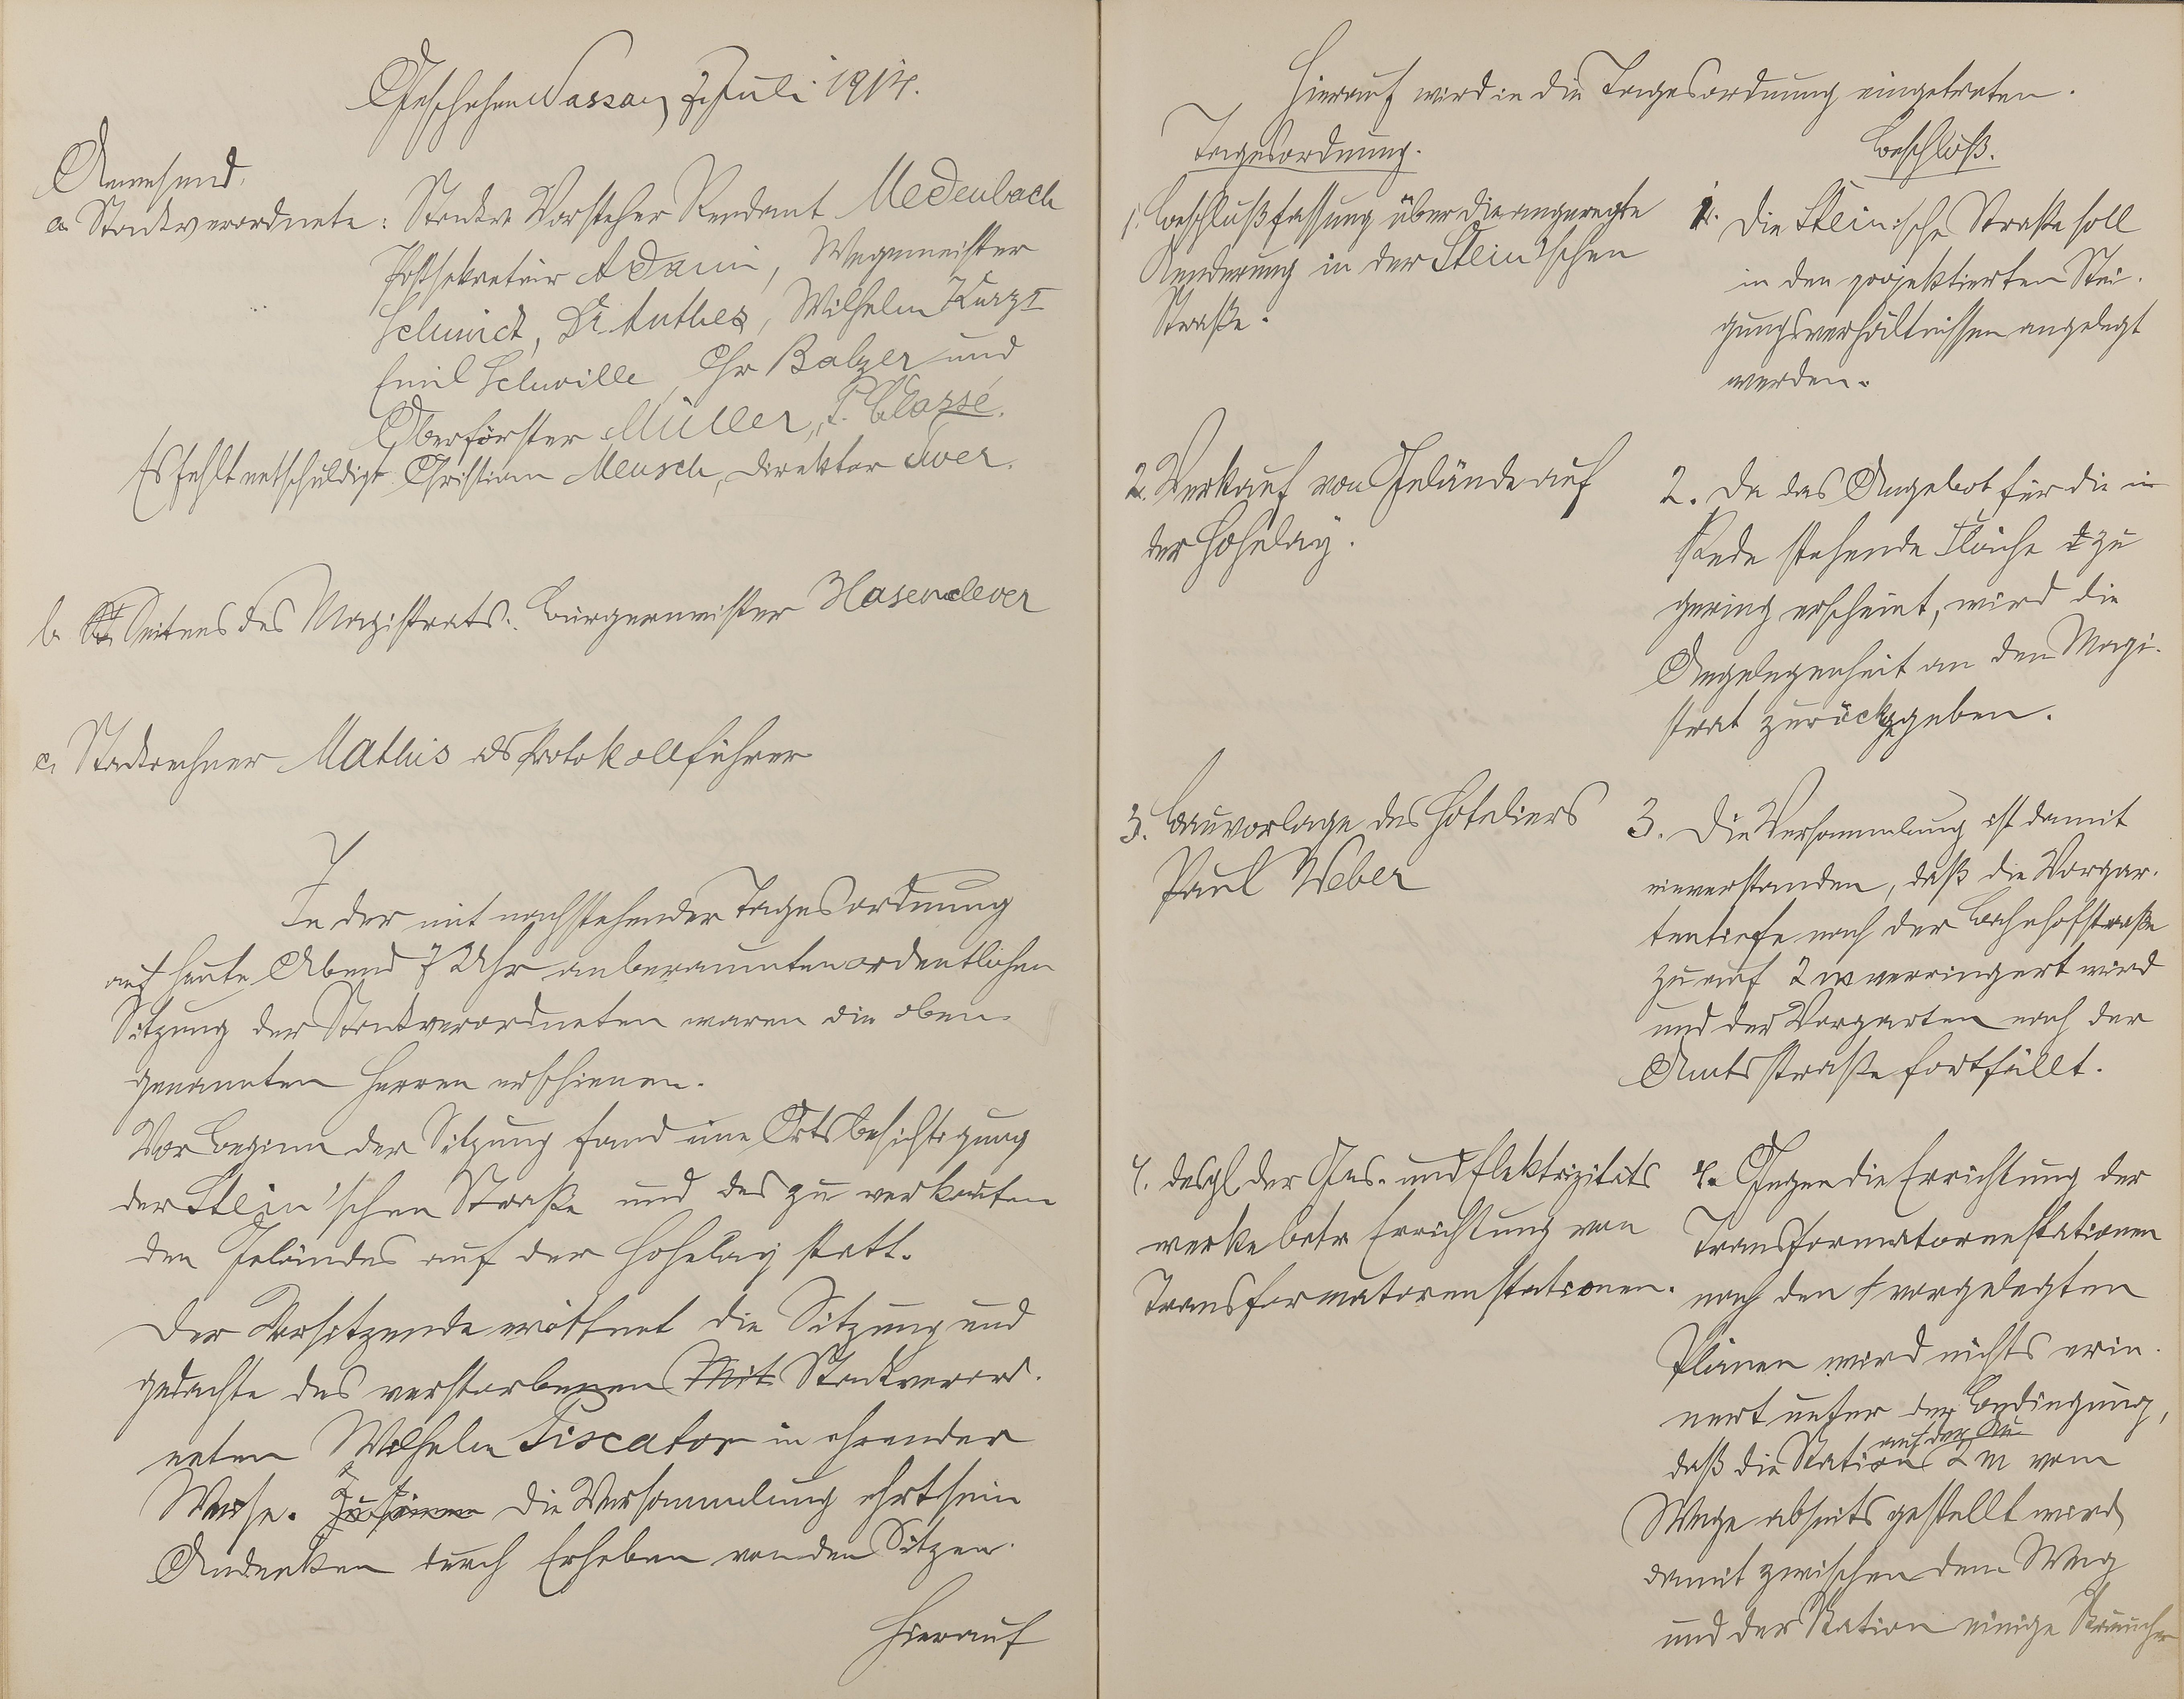 Geschehen Nassau, 7. Juli 1914.
Anwesend.
a. Stadtverordnete: Stadtv. Vorsteher Rendant Medenbach
Postsekretair Adami, Wegemeister
Schmidt, Dr Anthes, Wilhelm Kurz I
Emil Schwille, Chr Balzer und
Oberförster Müller, F. Classé.
Es fehlt entschuldigt Christian Meusch, Direktor Twer.
b. St Seitens des Magistrats: Bürgermeister Hasenclever
c. Stadtrechner Mathis als Protokollführer
In der mit nachstehender Tagesordnung
auf heute Abend 7 Uhr anberaumten ordentlichen
Sitzung der Stadtverordneten waren die oben
genannten Herren erschienen.
Vor Beginn der Sitzung fand eine Ortsbesichtigung
der Stein'schen Straße und des zu verkaufen
den Geländes auf der Hohelay statt.
Der Vorsitzende eröffnet die Sitzung und
gedachte des verstorbenen Mit Stadtverord-
neten Wilhelm Piscator in ehrender
Weise. Zu seinem Die Versammlung ehrt sein
Andenken durch Erheben von den Sitzen.
Hierauf
Hierauf wird in die Tagesordnung eingetreten.
Tagesordnung.
Beschluß.
1. Beschlußfassung über die angeregte
Aenderung in der Stein'schen
Straße.
1. Die Stein'sche Straße soll
in den projektierten Stei-
gungsverhältnissen angelegt
werden.
2. Verkauf von Gelände auf
der Hohelay.
2. Da das Angebot für die in
Rede stehende Fläche zu
gering erscheint, wird die
Angelegenheit an den Magi-
strat zurückgegeben.
3. Bauvorlage des Hoteliers
Paul Weber
3. Die Versammlung ist damit
einverstanden, daß die Vorgar-
tentiefe nach der Bahnhofstraße
zu auf 2 m verringert wird
und der Vorgarten nach der
Amtsstraße fortfällt.
4. desgl. der Gas- und Elektrizitäts
werke betr. Errichtung von
Transformatorenstationen.
4. Gegen die Errichtung der
Transformatorenstationen
nach den vorgelegten
Plänen wird nichts erin-
nert unter der Bedingung,
auf der Au
daß die Station 2 m vom
Wege abseits gestellt wird
damit zwischen dem Weg
und der Station einige Sträucher